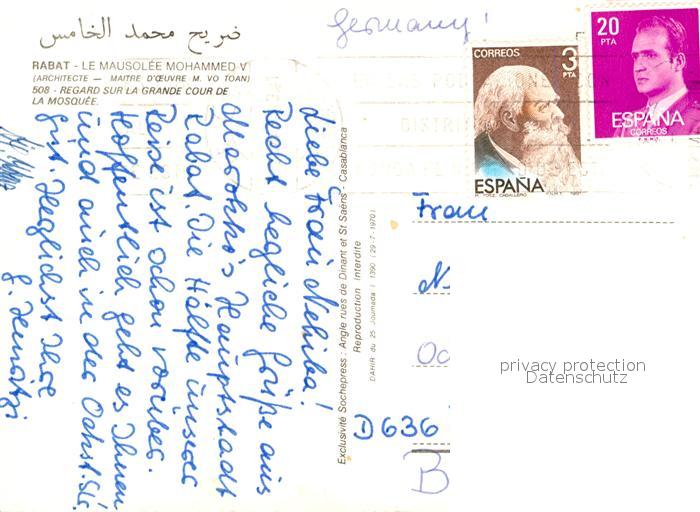 ضريح محمد الخامس
RABAT - LE MAUSOLÉE MOHAMMED V
(ARCHITECTE — MAITRE D'ŒUVRE M. VO TOAN)
508 - REGARD SUR LA GRANDE COUR DE
LA MOSQUÉE.
Germany!
CORREOS 3 PTA
ESPAÑA
20 PTA
ESPAÑA
CORREOS
F.N.M.T.
Liebe Frau Nehiba!
Recht herzliche Grüße aus
Marokko's Hauptstadt
Rabat. Die Hälfte unserer
Reise ist schon vorüber.
Hoffentlich geht es Ihnen
und auch in der Ochst. Str.
gut. Herzlichst Ihre
Exclusivité Sochepress : Angle rues de Dinant et St Saëns - Casablanca
Reproduction Interdite
DAHIR du 25 Joumada I 1390 (29-7-1970)
Frau
N
Oc
D636
B
privacy protection
Datenschutz